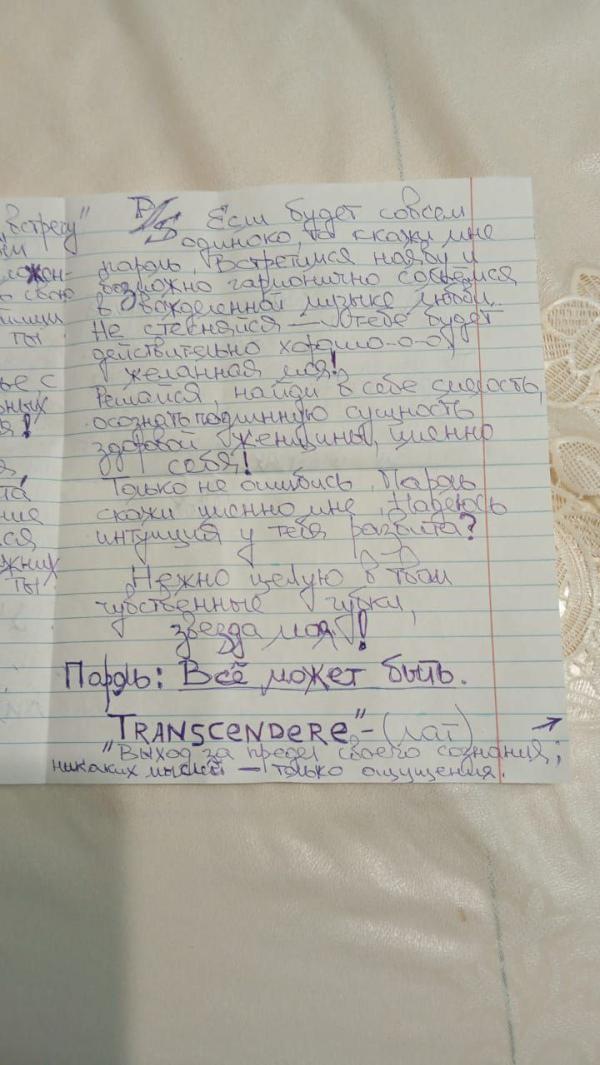 встречу"
ем
ты
ье с
ных
я!
та
ние
ся
жних
ты
P/S Если будет совсем
одиноко, то скажи мне
пароль, Встретимся наяву и
возможно гармонично сольёмся
в вожделенной музыке любви.
Не стесняйся — тебе будет
действительно хорошо-о-о,
желанная моя!
Решайся, найди в себе смелость,
осознать подлинную сущность
здоровой женщины, именно
себя!
Только не ошибись, Пароль
скажи именно мне, Надеюсь
интуиция у тебя развита?
Нежно целую в твои
чувственные губки,
звезда моя!
Пароль: Всё может быть.
"TRANSCENDERE" - (лат) →
"Выход за предел своего сознания;
никаких мыслей — только ощущения.